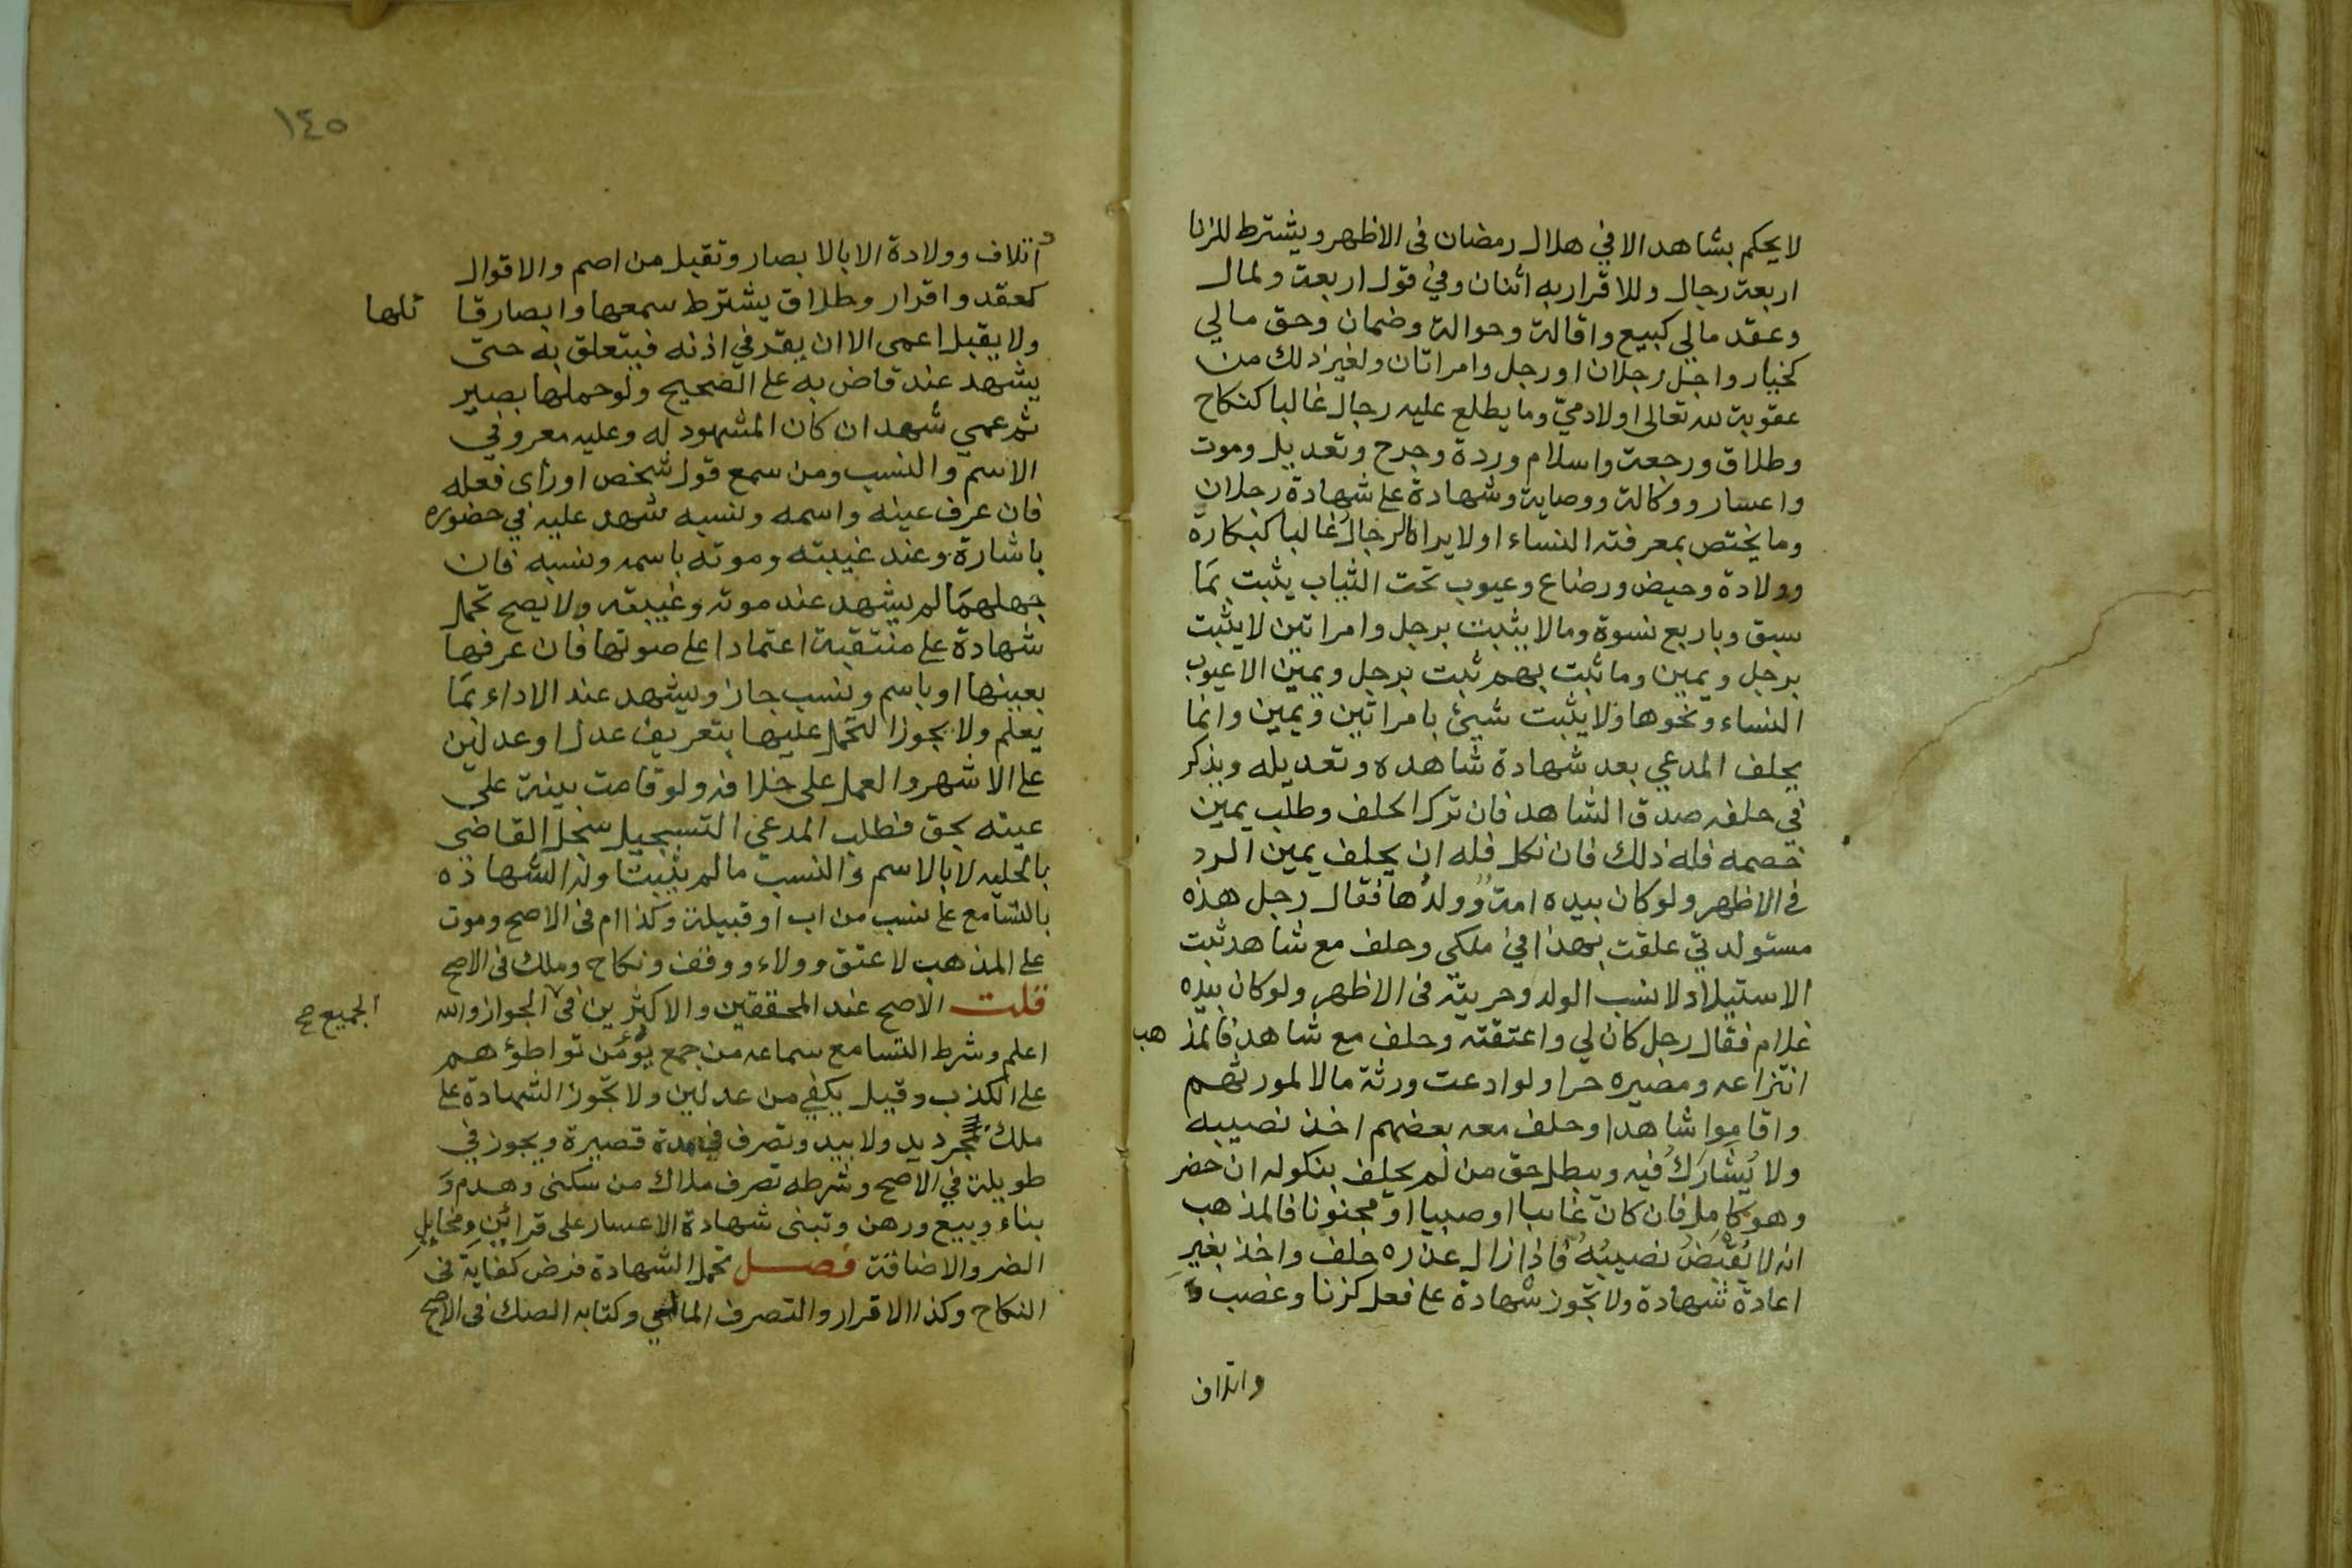 لا يحكم بشاهد الا في هلال رمضان فى الاظهر ويشترط للزنا
اربعة رجال وللاقرار به اثنان وفي قول اربعة ولمال
وعقد مالي كبيع واقالة وحوالة وضمان وحق مالي
كخيار واجل رجلان او رجل وامراتان ولغير ذلك من
عقوبة لله تعالى او لادميّ وما يطلع عليه رجال غالبا كنكاح
وطلاق ورجعة واسلام وردة وجرح وتعديل وموت
واعسار ووكالة ووصاية وشهادة على شهادة رجلان
وما يختص بمعرفته النساء او لا يراه الرجال غالبا كبكارة
وولادة وحيض ورضاع وعيوب تحت الثياب يثبت بمَا
سبق وباربع نسوة وما لا يثبت برجل وامراتين لا يثبت
برجل ويمين وما ثبت بهم ثبت برجل ويمين الا عيوب
النساء ونحوها ولا يثبت شيئ بامراتين ويمين وانما
يحلف المدعي بعد شهادة شاهده وتعديله ويذكر
في حلفه صدق الشاهد فان ترك الحلف وطلب يمين
خصمه فله ذلك فان نكل فله ان يحلف يمين الرد
فى الاظهر ولو كان بيده امةٌ وولدُها فقال رجل هذه
مستولدتي علقت بهذا في ملكى وحلف مع شاهد ثبت
الاستيلاد لا نسب الولد وحريته فى الاظهر ولو كان بيده
غلام فقال رجل كان لي واعتقته وحلف مع شاهد فالمذهب
انتزاعه ومصيره حرا ولو ادعت ورثة مالا لمورثهم
واقاموا شاهدا وحلف معه بعضهم اخذ نصيبه
ولا يُشارَكُ فيه ويبطل حق من لم يحلف بنكوله ان حضر
وهو كامل فان كان غائبا او صبيا او مجنونا فالمذهب
انه لا يُقبَضُ نصيبُهُ فاذا زال عذره حلف واخذ بغير
اعادة شهادة ولا تجوز شهادة على فعل كزنا وغصب و
واتلاف
١٤٥
اتلاف وولادة الا بالابصار وتقبل من اصم والاقوال
كعقد واقرار وطلاق يشترط سمعها وابصار قا ئلها
ولا يقبل اعمى الا ان يقر في اذنه فيتعلق به حتى
يشهد عند قاض به على الصحيح ولو حملها بصير
ثم عمي شهد ان كان المشهود له وعليه معروفي
الاسم والنسب ومن سمع قول شخص او رأى فعله
فان عرف عينه واسمه ونسبه شهد عليه في حضوره
باشارة وعند غيبته وموته باسمه ونسبه فان
جهلهمَا لم يشهد عند موته وغيبته ولا يصح تحمل
شهادة على منتقبة اعتمادا على صوتها فان عرفها
بعينها او باسم ونسب جاز ويشهد عند الاداء بمَا
يعلم ولا يجوز التحمل عليها بتعريف عدل او عدلين
على الاشهر والعمل على خلافه ولو قامت بينة على
عينه بحق فطلب المدعي التسجيل سجل القاضى
بالحلية لا بالاسم والنسب ما لم يثبتا وله الشهادة
بالتسامع على نسب من اب او قبيلة وكذا ام فى الاصح وموت
على المذهب لا عتق وولاء ووقف ونكاح وملك فى الاصح
قلت الاصح عند المحققين والاكثرين فى الجواز والله
الجميع صح
اعلم وشرط التسامع سماعه من جمع يؤمَن تواطؤهم
على الكذب وقيل يكفي من عدلين ولا تجوز الشهادة على
ملك بمجرد يد ولا بيد وتصرف في مدة قصيرة ويجوز في
طويلة في الاصح وشرطه تصرف ملاك من سكنى وهدم وَ
بناء وبيع ورهن وتبنى شهادة الاعسار على قرائن ومخايل
الضر والاضافة فصل تحمل الشهادة فرض كفاية فى
النكاح وكذا الاقرار والتصرف المالي وكتابه الصك فى الاصح